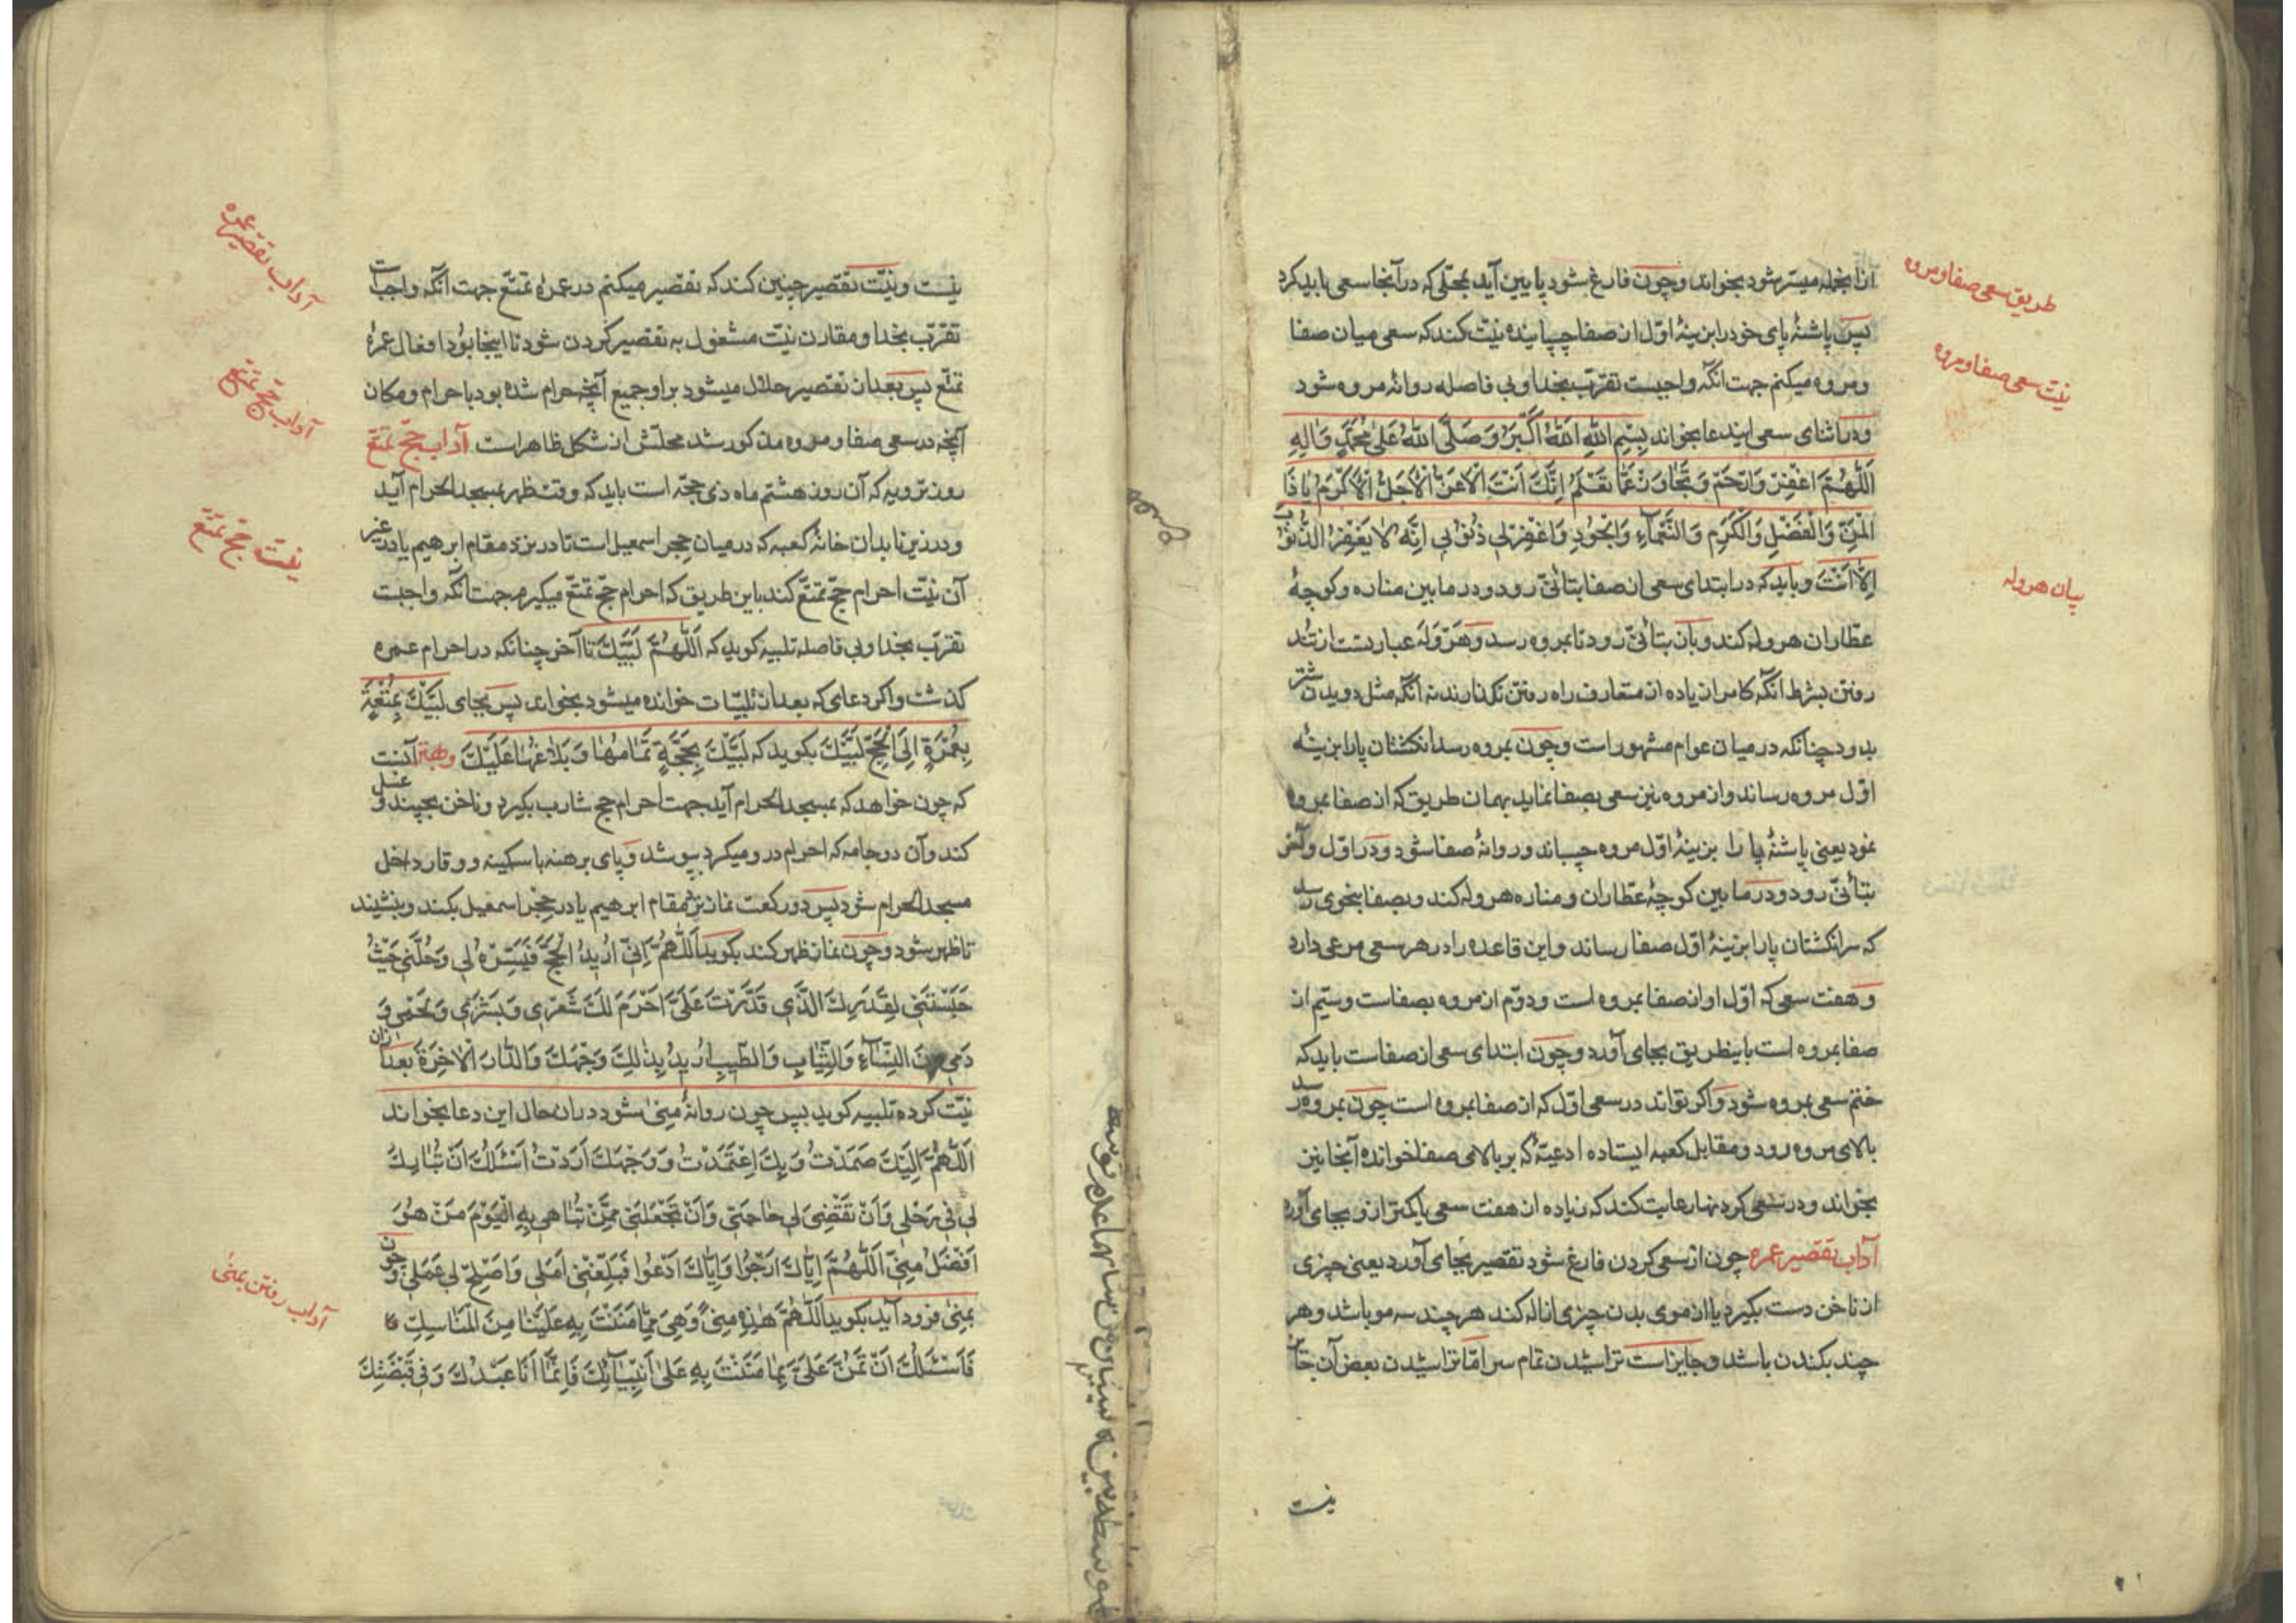 ازا بجمله میسر شود بخواند وچون فارغ شود پایین آید بمحلی که در آنجا سعی باید کرد
طریق سعی صفا و مروه
پس پاشنۀ پای خود را بزینۀ اوّل از صفا چسبانیده نیّت کند که سعی میان صفا
نیّت سعی صفا و مروه
ومروه میکنم جهت آنکه واجبست تقرّب بخدا وبی فاصله روانۀ مروه شود
ودر اثنای سعی ایندعا بخواند بِسْمِ اللهِ اَللهُ اَكْبَرُ وَصَلَّى اللهُ عَلىٰ مُحَمَّدٍ وَآلِهِ
اَللّٰهُمَّ اغْفِرْ وَارْحَمْ وَتَجَاوَزْ عَمَّا تَعْلَمُ اِنَّكَ اَنْتَ الْاَعَزُّ الْاَجَلُّ الْاَكْرَمُ يَا ذَا
الْمَنِّ وَالْفَضْلِ وَالْكَرَمِ وَالنَّعْمَاءِ وَالْجُودِ وَاغْفِرْ لِي ذُنُوبِي اِنَّهُ لَا يَغْفِرُ الذُّنُوبَ
اِلَّا اَنْتَ وباید که در ابتدای سعی از صفا بتأنّی رود ودر مابین مناره وکوچۀ
بیان هروله
عطّاران هروله کند وبان بتأنّی رود تا بمروه رسد وهَرْوَلَه عبارتست از تند
رفتن بشرط آنکه کامرا زیاده از متعارف راه رفتن نگذارند نه آنکه مثل دویدن شتر
بدود چنانکه در میان عوام مشهور است وچون بمروه رسد انگشتان پا را بزینۀ
اوّل مروه رساند واز مروه نیز سعی بصفا نماید بهمان طریق که از صفا بمروه
نمود یعنی پاشنۀ پا را بزینۀ اوّل مروه چسباند وروانۀ صفا شود ودر اوّل وآخر
بتأنّی رود ودر مابین کوچۀ عطّاران ومناره هروله کند وبصفا بنحوی رسد
که سر انگشتان پا را بزینۀ اوّل صفا رساند واین قاعده را در هر سعی مرعی دارد
وهفت سعی که اوّل او از صفا بمروه است ودوّم از مروه بصفاست وسیّم از
صفا بمروه است باینطریق بجای آورد وچون ابتدای سعی از صفاست باید که
ختم سعی بمروه شود واکر تواند در سعی اوّل که از صفا بمروه است چون بمروه رسد
بالای مروه رود ومقابل کعبه ایستاده ادعیۀ که بر بالای صفا خوانده آنجا نیز
بخواند ودر سعی کردنها رعایت کند که زیاده از هفت سعی یا کمتر ازو بجای آورد
آداب تقصیر عمره چون از سعی کردن فارغ شود تقصیر بجای آورد یعنی چیزی
از ناخن دست بگیرد یا از موی بدن چیزی ازاله کند هرچند سه مو باشد وهر
چند بکندن باشد وجایز است تراشیدن تمام سر امّا تراشیدن بعض آن جایز
نیست
نیست ونیّت تقصیر چنین کند که تقصیر میکنم در عمرۀ تمتّع جهت آنکه واجبست
آداب تقصیر عمره
تقرّب بخدا ومقارن نیّت مشغول به تقصیر کردن شود تا اینجا بود افعال عمرۀ
تمتّع پس بعد از تقصیر حلال میشود بر او جمیع آنچه حرام شده بود باحرام ومکان
آداب حجّ تمتّع
آنچه در سعی صفا ومروه مذکور شد محلّش از شکل ظاهر است آداب حجّ تمتّع
روز ترویه که آن روز هشتم ماه ذی حجّه است باید که وقت ظهر بمسجد الحرام آید
ودر زیر نابدان خانۀ کعبه که در میان حجر اسمعیل است تا در نزد مقام ابرهیم یا در غیر
نیّت حجّ تمتّع
آن نیّت احرام حجّ تمتّع کند باین طریق که احرام حجّ تمتّع میگیرم جهت آنکه واجبست
تقرّب بخدا وبی فاصله تلبیه کوید که اَللّٰهُمَّ لَبَّيْكَ تا آخر چنانکه در احرام عمره
کذشت واکر دعای که بعد از تلبیات خوانده میشود بخواند پس بجای لَبَّيْكَ بِمُتْعَةٍ
بِعُمْرَةٍ اِلَى الْحَجِّ لَبَّيْكَ بکوید که لَبَّيْكَ بِحَجَّةٍ تَمَامُهَا وَبَلَاغُهَا عَلَيْكَ وبهتر آنست
که چون خواهد که بمسجد الحرام آید جهت احرام حج شارب بگیرد وناخن بچیند وغسل
کند وآن دو جامه که احرام در ومیکرد بپوشد وپای برهنه با سکینه ووقار داخل
مسجد الحرام شود پس دو رکعت نماز نزد مقام ابرهیم یا در حجر اسمعیل بکند وبنشیند
تا ظهر شود وچون نماز ظهر کند بکوید اَللّٰهُمَّ اِنِّي اُرِيدُ الْحَجَّ فَيَسِّرْهُ لِي وَحُلَّنِي حَيْثُ
حَبَسْتَنِي لِقَدَرِكَ الَّذِي قَدَّرْتَ عَلَيَّ اَحْرَمَ لَكَ شَعْرِي وَبَشَرِي وَلَحْمِي وَ
دَمِي مِنَ النِّسَاءِ وَالثِّيَابِ وَالطِّيبِ اُرِيدُ بِذٰلِكَ وَجْهَكَ وَالدَّارَ الْاٰخِرَةَ بعد ازان
نیّت کرده تلبیه کوید پس چون روانۀ منیٰ شود در ان حال این دعا بخواند
اَللّٰهُمَّ اِلَيْكَ صَمَدْتُ وَبِكَ اِعْتَمَدْتُ وَوَجْهَكَ اَرَدْتُ اَسْئَلُكَ اَنْ تُبَارِكَ
لِي فِي رَحْلِي وَاَنْ تَقْضِيَ لِي حَاجَتِي وَاَنْ تَجْعَلَنِي مِمَّنْ تُبَاهِي بِهِ الْيَوْمَ مَنْ هُوَ
اَفْضَلُ مِنِّي اَللّٰهُمَّ اِيَّاكَ اَرْجُوا وَاِيَّاكَ اَدْعُوا فَبَلِّغْنِي اَمَلِي وَاَصْلِحْ لِي عَمَلِي وچون
آداب رفتن بمنیٰ
بمنیٰ فرود آید بکوید اَللّٰهُمَّ هٰذِهِ مِنىً وَهِيَ مِمَّا مَنَنْتَ بِهِ عَلَيْنَا مِنَ الْمَنَاسِكِ
فَاَسْئَلُكَ اَنْ تَمُنَّ عَلَيَّ بِمَا مَنَنْتَ بِهِ عَلىٰ اَنْبِيَائِكَ فَاِنَّمَا اَنَا عَبْدُكَ وَفِي قَبْضَتِكَ